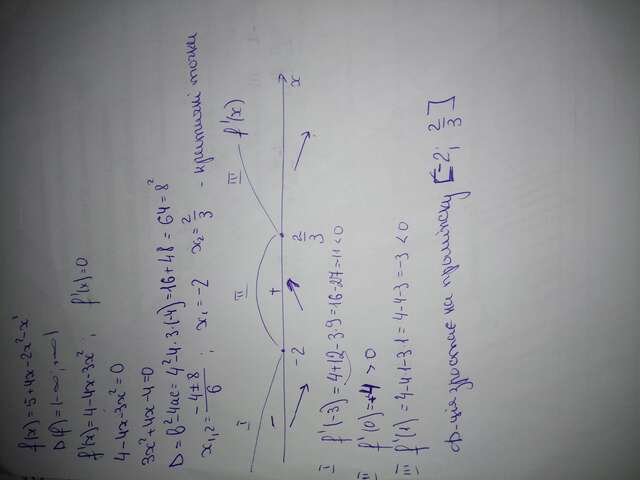 f(x)=5+4x-2x²-x³
D(f)=(-∞;+∞)
f'(x)=4-4x-3x²; f'(x)=0
4-4x-3x²=0
3x²+4x-4=0
D=b²-4ac=4²-4·3·(-4)=16+48=64=8²
x₁,₂=(-4±8)/6; x₁=-2 x₂=2/3 - критичні точки
I II III f'(x)
- +
-2 2/3 x
I f'(-3)=4+12-3·9=16-27=-11<0
II f'(0)=+4>0
III f'(1)=4-4·1-3·1=4-4-3=-3<0
ф-ція зростає на проміжку [-2; 2/3]